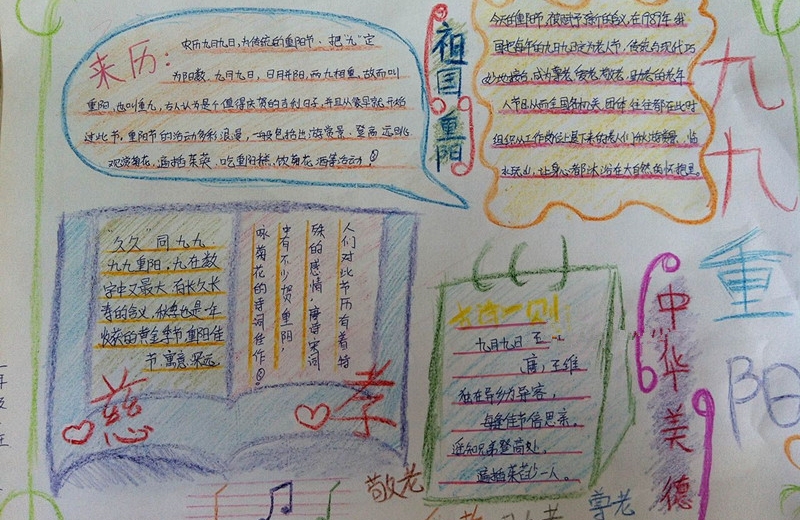 来历：
农历九月九日，为传统的重阳节。把“九”定
为阳数，九月九日，日月并阳，两九相重，故而叫
重阳，也叫重九，古人认为是个值得庆贺的吉利日子，并且从很早就开始
过此节，重阳节的活动多彩浪漫，一般包括出游赏景、登高远眺
观赏菊花、遍插茱萸、吃重阳糕、饮菊花酒等活动！
祖国重阳
今天的重阳节，被赋予新的含义，在1989年我
国把每年的九月九日定为老人节，传统与现代巧
妙地结合，成为尊老、敬老、爱老、助老的老年
人节日，从而全国各机关、团体往往都在此时
组织从工作岗位上退下来的老人们秋游赏景、临
水玩山，让身心都沐浴在大自然的怀抱里。
九九重阳
“久久”同九九
九九重阳，九在数
字中又最大，有长久长
寿的含义，秋季也是一年
收获的黄金季节，重阳佳
节，寓意深远，
人们对此节历有着特
殊的感情，唐诗宋词
中有不少贺重阳，
咏菊花的诗词佳作！
慈
孝
古诗一则
九月九日
唐，王维
独在异乡为异客，
每逢佳节倍思亲。
遥知兄弟登高处，
遍插茱萸少一人。
中华美德
敬老
尊老